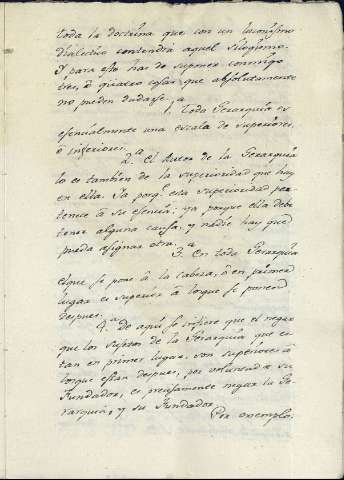 toda la doctrina que con un laconismo
dialectico contendrá aquel silogismo.
Y para esto has de suponer conmigo
tres, ó quatro cosas que absolutamente
no pueden dudarse.
1.ª Toda Gerarquía es
esencialmente una escala de superiores,
ó inferiores.
2.ª El Autor de la Gerarquía
lo es tambien de la superioridad que hay
en ella. Ya porq.e esta superioridad per-
tenece á su esencia; ya porque ella debe
tener alguna causa, y nadie hay que
pueda asignar otra.
3.ª En toda Gerarquía
el que se pone á la cabeza, ó en primer
lugar es superior á los que se ponen
despues.
4.ª De aquí se infiere que el negar
que los sujetos de la Gerarquía que es-
tan en primer lugar, son superiores á
los que estan despues, por voluntad de su
Fundador, es precisamente negar la Ge-
rarquía, y su Fundador.
Por exemplo.